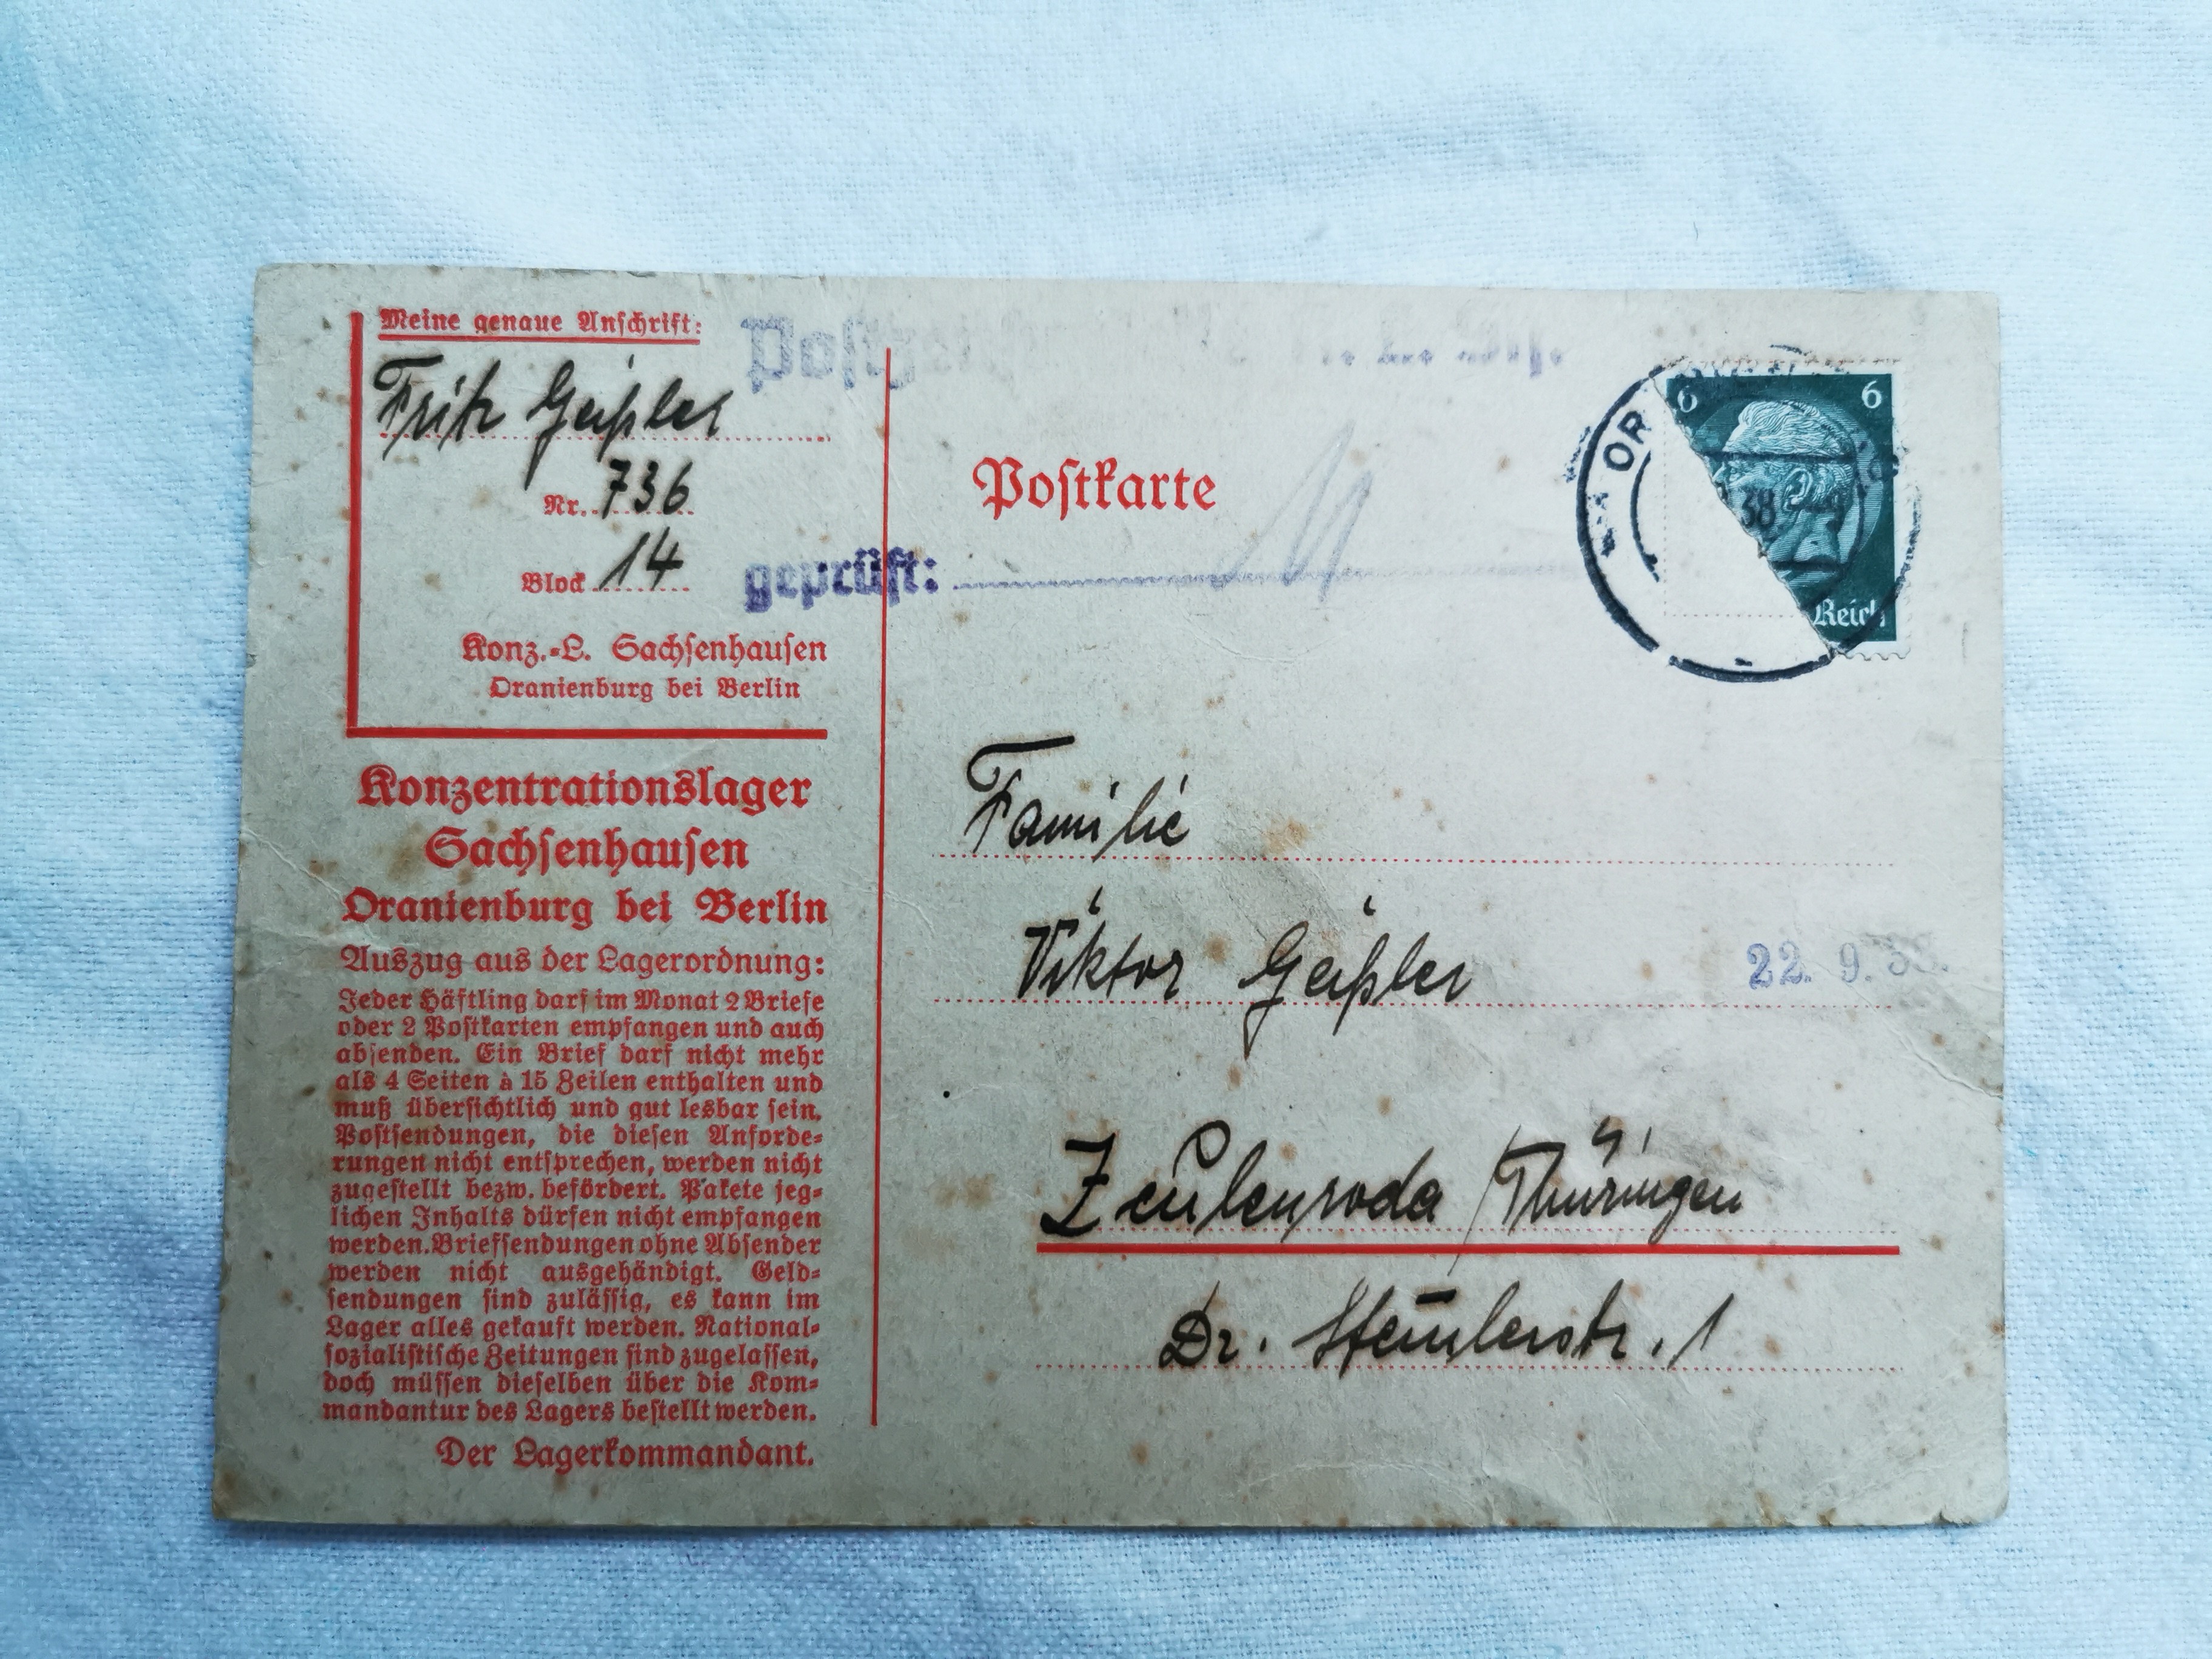 Meine genaue Anschrift:
Fritz Geißler
Nr. 736
Block 14
Konz.-L. Sachsenhausen
Oranienburg bei Berlin
Konzentrationslager
Sachsenhausen
Oranienburg bei Berlin
Auszug aus der Lagerordnung:
Jeder Häftling darf im Monat 2 Briefe
oder 2 Postkarten empfangen und auch
absenden. Ein Brief darf nicht mehr
als 4 Seiten à 15 Zeilen enthalten und
muß übersichtlich und gut lesbar sein.
Postsendungen, die diesen Anforde-
rungen nicht entsprechen, werden nicht
zugestellt bezw. befördert. Pakete jeg-
lichen Inhalts dürfen nicht empfangen
werden. Briefsendungen ohne Absender
werden nicht ausgehändigt. Geld-
sendungen sind zulässig, es kann im
Lager alles gekauft werden. National-
sozialistische Zeitungen sind zugelassen,
doch müssen dieselben über die Kom-
mandantur des Lagers bestellt werden.
Der Lagerkommandant.
Postkarte
geprüft:
6 6
OR
38
Reich
Familie
Viktor Geißler
22. 9. 38.
Zeulenroda / Thüringen
Dr. Stemlerstr. 1